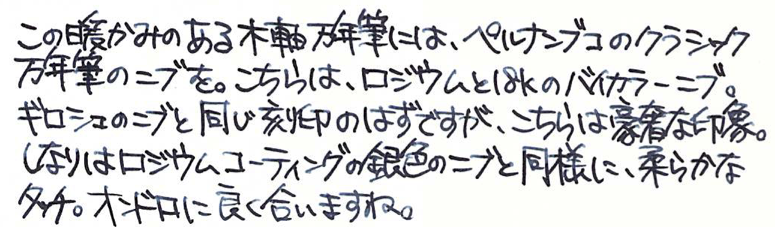 この暖かみのある木軸万年筆には、ペルナンブコのクラシック
万年筆のニブを。こちらは、ロジウムと18kのバイカラーニブ。
ギロシェのニブと同じ刻印のはずですが、こちらは豪奢な印象。
しなりはロジウムコーティングの銀色のニブと同様に、柔らかな
タッチ。オンドロに良く合いますね。